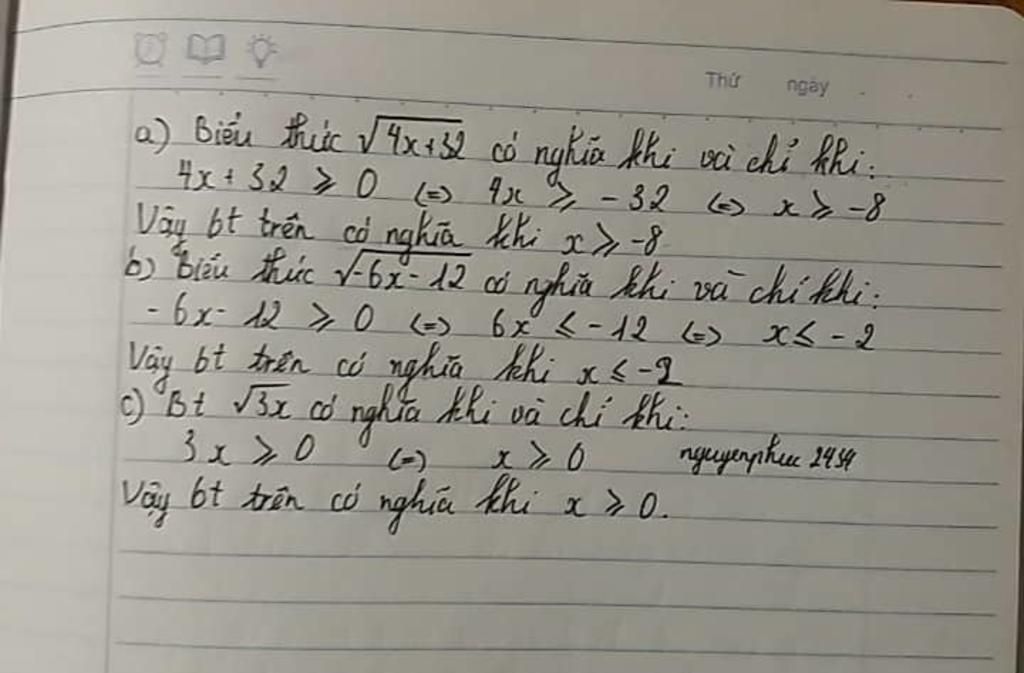 Thứ ngày
a) Biểu thức √4x+32 có nghĩa khi và chỉ khi:
4x + 32 ⩾ 0 (=) 4x ⩾ - 32 (=) x ⩾ -8
Vậy bt trên có nghĩa khi x ⩾ -8
b) Biểu thức √-6x-12 có nghĩa khi và chỉ khi:
- 6x - 12 ⩾ 0 (=) 6x ⩽ -12 (=) x ⩽ -2
Vậy bt trên có nghĩa khi x ⩽ -2
c) Bt √3x có nghĩa khi và chỉ khi:
3x ⩾ 0 (=) x ⩾ 0 nguyenphuc 2454
Vậy bt trên có nghĩa khi x ⩾ 0.